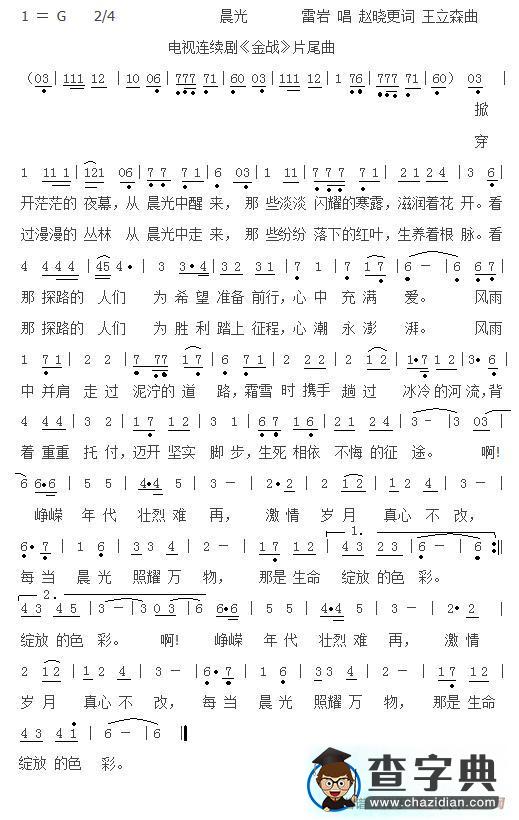 1 = G 2/4 晨光 雷岩 唱 赵晓更词 王立森曲
电视连续剧《金战》片尾曲
（03 | 111 12 | 10 06 | 777 71 | 60 03 | 1 12 | 1 76 | 777 71 | 60） 03 |
掀
穿
1 11 1 | 121 06 | 7 7 7 1 | 6 03 | 1 11 | 777 71 | 2 24 | 3 6 |
开茫茫的 夜幕，从 晨光中醒 来，那 些淡淡 闪耀的寒露，滋润着花 开。看
过漫漫的 丛林 从 晨光中走 来，那 些纷纷 落下的红叶，生养着根 脉。看
4 4 4 4 | 45 4· | 3 3·4 | 32 31 | 7 1 | 7 17 | 6 － | 6 67 |
那 探路的 人们 为 希 望 准备 前行，心 中 充 满 爱。 风雨
那 探路的 人们 为 胜 利 踏上 征程，心 潮 永 澎 湃。 风雨
1 71 | 2 1 | 7 77 17 | 6 67 | 2 22 | 2 12 | 1·7 12 | 3· 6 |
中 并肩 走 过 泥泞的 道 路，霜雪 时 携手 趟 过 冰冷的 河 流，背
4 44 | 3 2 | 17 12 | 3 12 | 67 16 | 21 24 | 3 － | 3 03 |
着 重重 托 付，迈开 坚实 脚 步，生死 相依 不悔 的征 途。 啊！
6 6·6 | 2 5 | 4·4 5 | 3 － | 2·2 | 2 12 | 1 2 | 3 － |
峥嵘 年 代 壮烈 难 再， 激 情 岁 月 真心 不 改，
6·7 | 1 6 | 33 4 | 2 － | 17 12 | 43 23 | 6 － | 6 :‖
1.
每 当 晨 光 照耀 万 物， 那是 生命 绽放 的色 彩。
2.
43 45 | 3 － | 3 03 | 6 6·6 | 2 5 | 4·4 5 | 3 － | 2·2 |
绽放 的色 彩。 啊！ 峥嵘 年 代 壮烈 难 再， 激 情
2 12 | 12 | 3 － | 6·7 | 1 6 | 33 4 | 2 － | 17 12 |
岁 月 真心 不 改， 每 当 晨 光 照耀 万 物， 那是 生命
43 4i | 6 － | 6 ‖
绽放 的色 彩。
查字典
www.chazidian.com